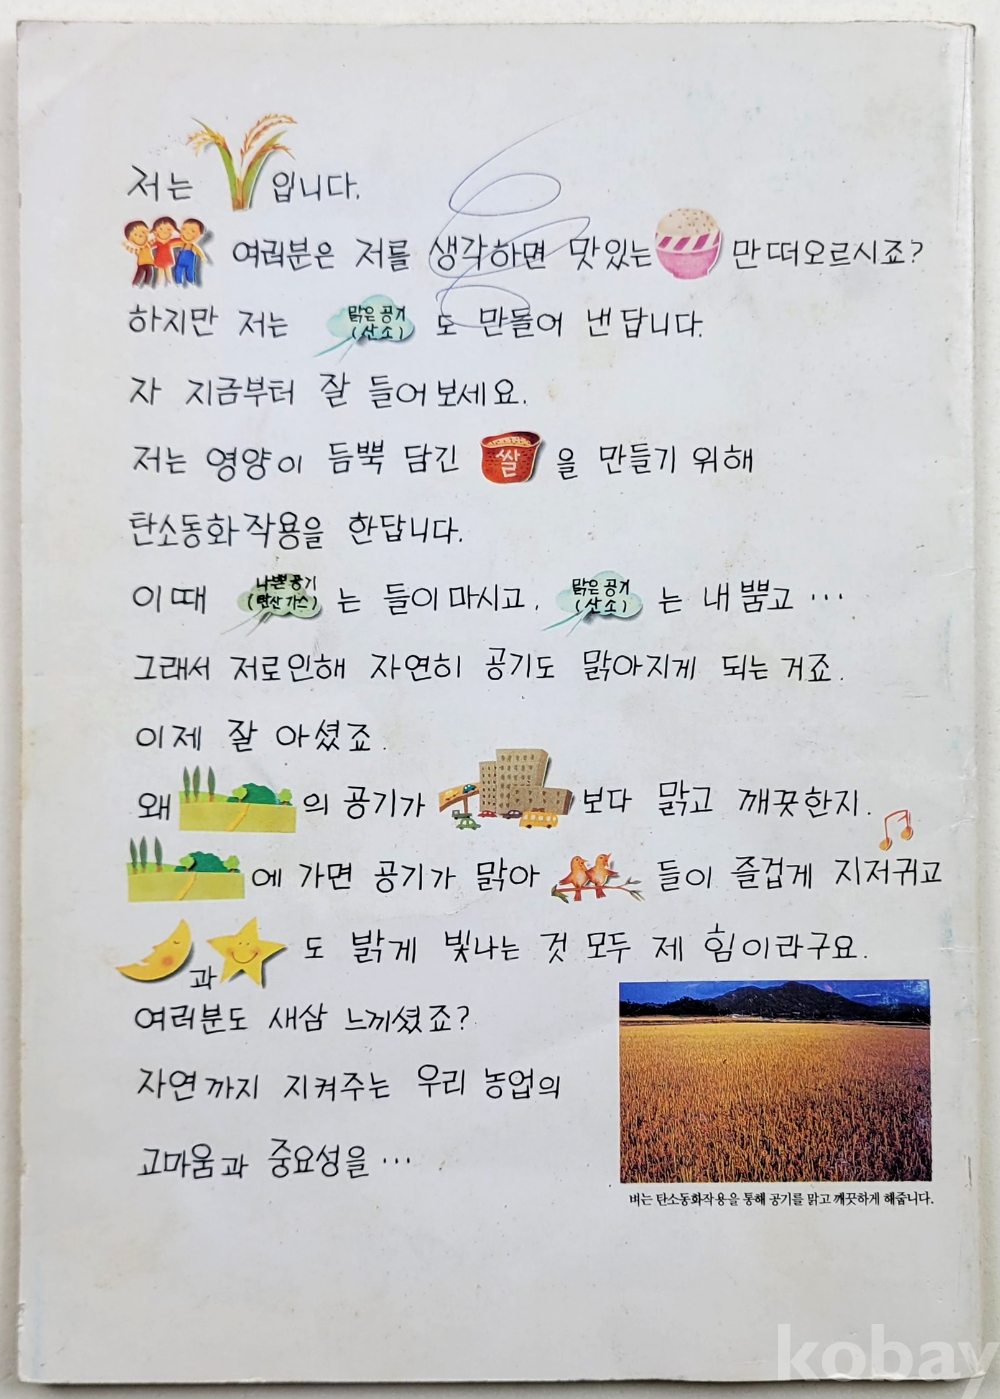 저는 입니다.
여러분은 저를 생각하면 맛있는 만 떠오르시죠?
하지만 저는 맑은 공기 (산소) 도 만들어 낸답니다.
자 지금부터 잘 들어보세요.
저는 영양이 듬뿍 담긴 쌀 을 만들기 위해
탄소동화작용을 한답니다.
이때 나쁜공기 (탄산가스) 는 들이마시고, 맑은 공기 (산소) 는 내뿜고 ···
그래서 저로인해 자연히 공기도 맑아지게 되는 거죠.
이제 잘 아셨죠.
왜 의 공기가 보다 맑고 깨끗한지.
에 가면 공기가 맑아 들이 즐겁게 지저귀고
과 도 밝게 빛나는 것 모두 제 힘이라구요.
여러분도 새삼 느끼셨죠?
자연까지 지켜주는 우리 농업의
고마움과 중요성을 ···
벼는 탄소동화작용을 통해 공기를 맑고 깨끗하게 해줍니다.
kobay